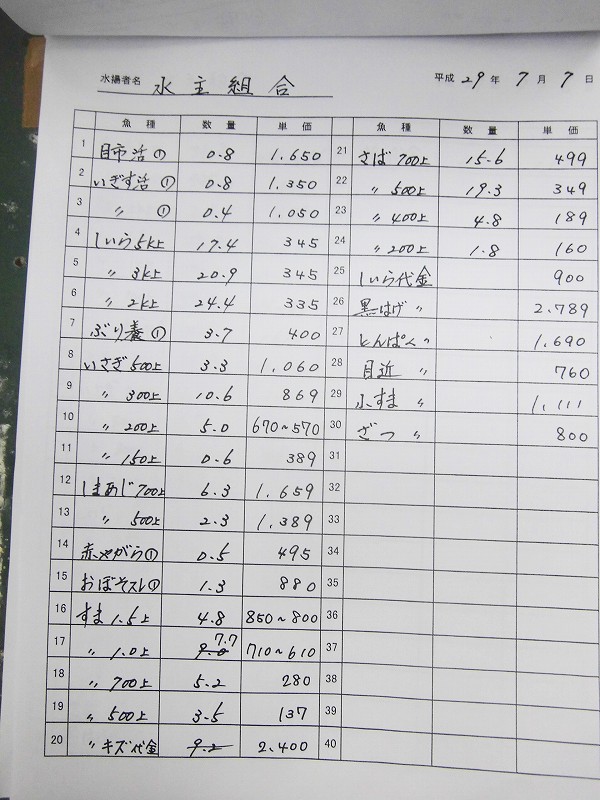 水揚者名 水主組合 平成 29 年 7 月 7 日
魚種 数量 単価 魚種 数量 単価
1 目市活① 0.8 1,650 21 さば700上 15.6 499
2 いぎす活① 0.8 1,350 22 〃 500上 19.3 349
3 〃 ① 0.4 1,050 23 〃 400上 4.8 189
4 しいら5k上 17.4 345 24 〃 200上 1.8 160
5 〃 3k上 20.9 345 25 しいら代金 900
6 〃 2k上 24.4 335 26 黒はげ 〃 2,789
7 ぶり養① 3.7 400 27 とんぱく 〃 1,690
8 いさぎ500上 3.3 1,060 28 目近 〃 760
9 〃 300上 10.6 869 29 ふすま 〃 1,111
10 〃 200上 5.0 670~570 30 ざつ 〃 800
11 〃 150上 0.6 389 31
12 しまあじ700上 6.3 1,659 32
13 〃 500上 2.3 1,389 33
14 赤やがら① 0.5 495 34
15 おぼそスレ① 1.3 880 35
16 すま1.5上 4.8 850~800 36
17 〃 1.0上 7.7 710~610 37
18 〃 700上 5.2 280 38
19 〃 500上 3.5 137 39
20 〃キズ代金 9.2 2,400 40